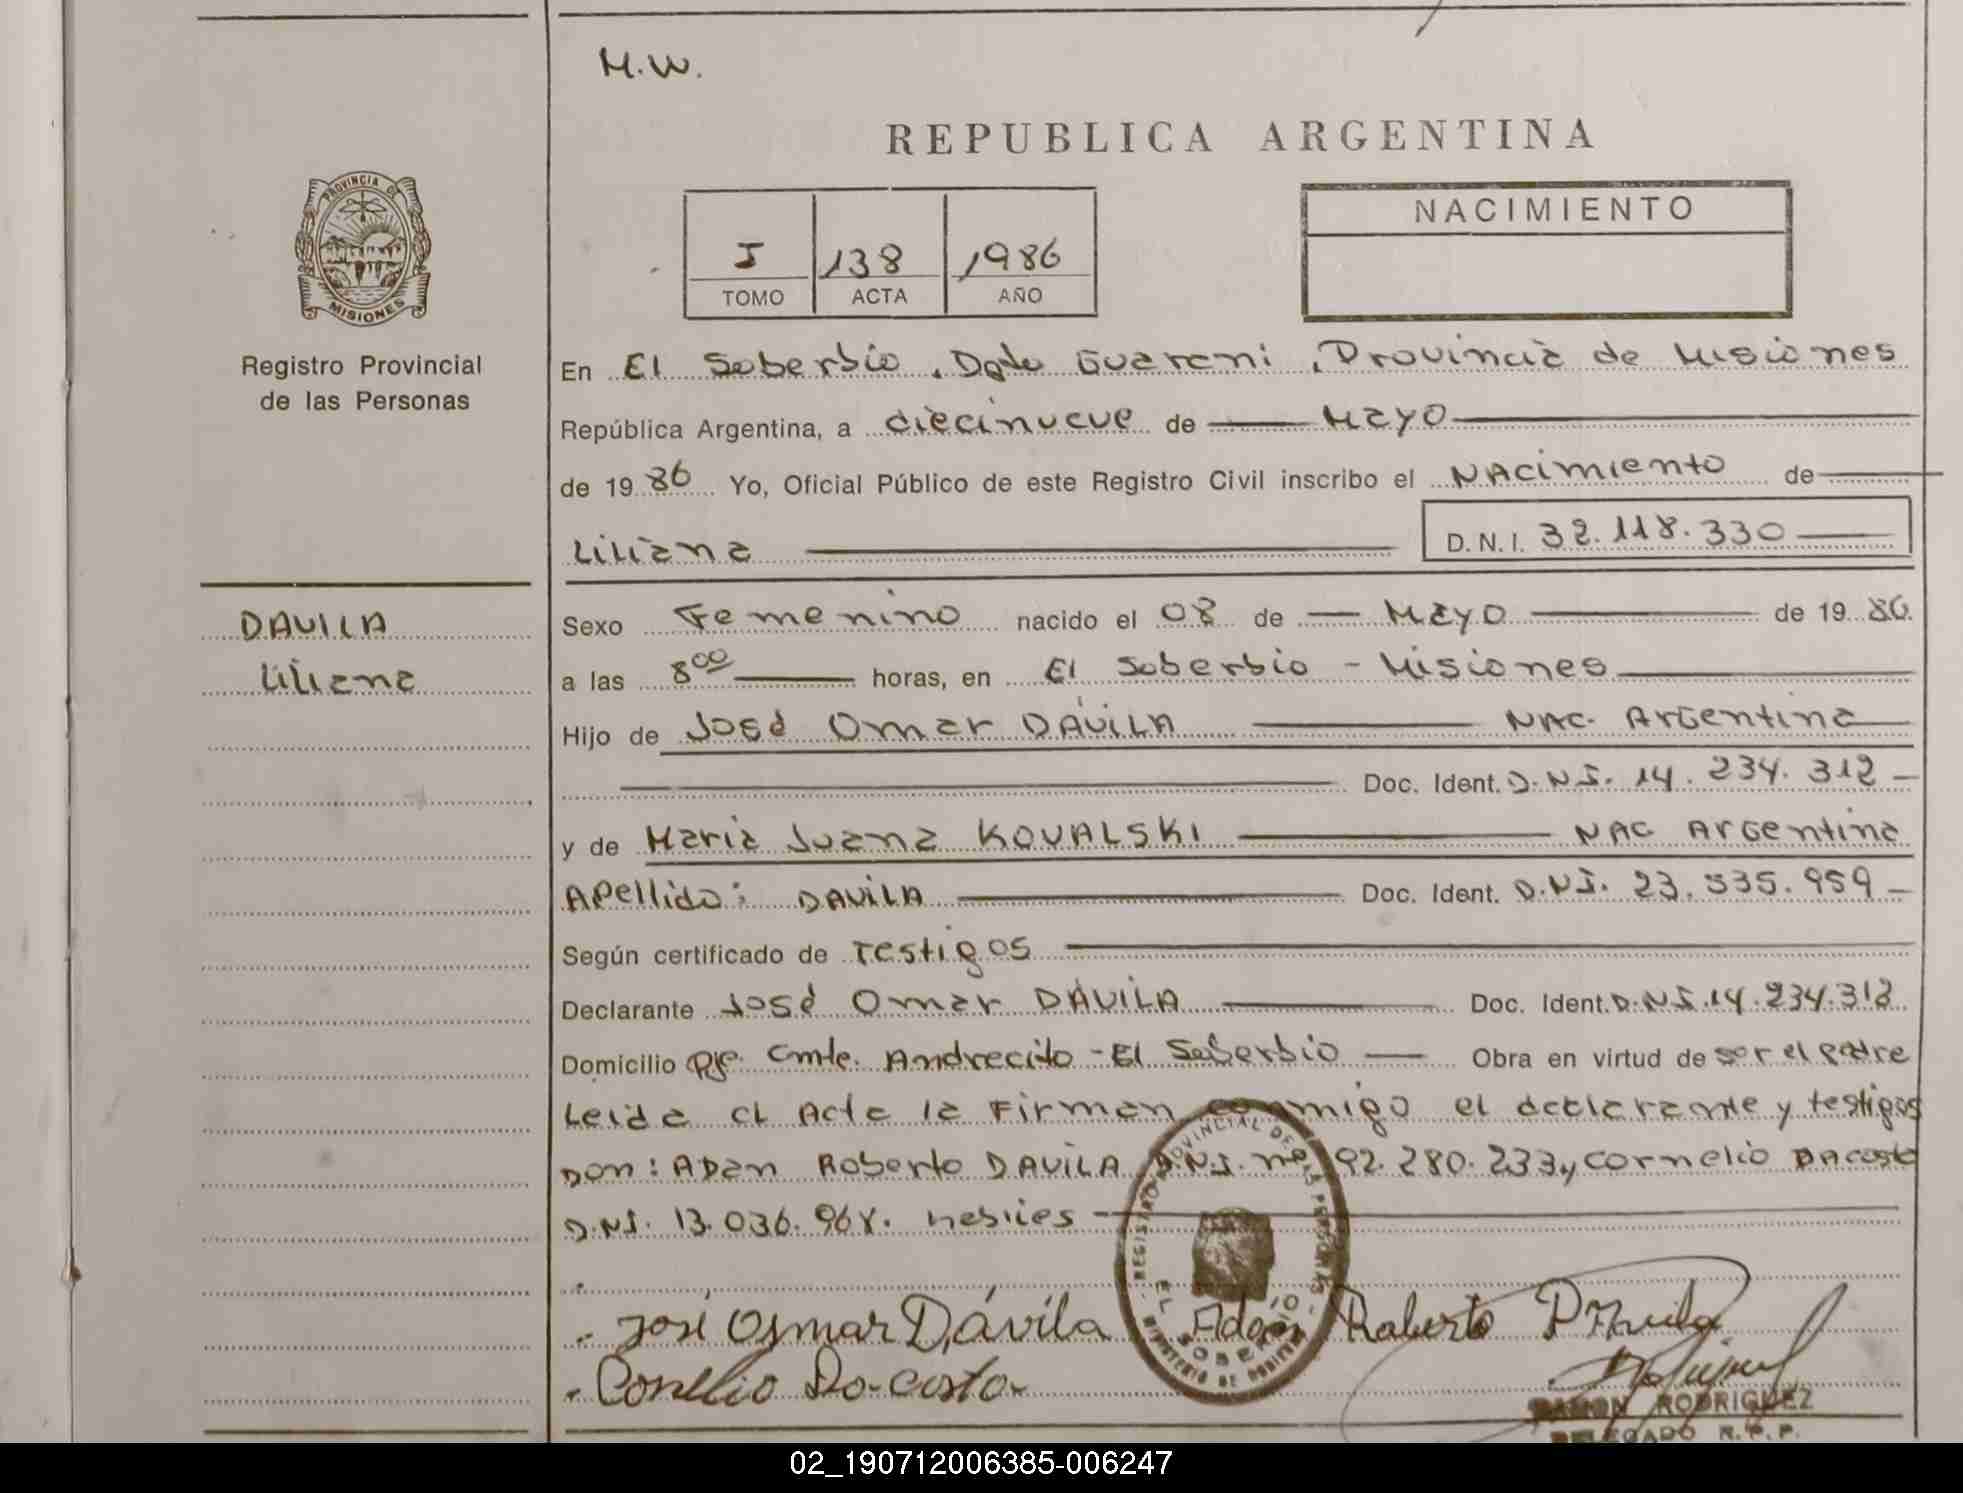 M.W.
REPUBLICA ARGENTINA
PROVINCIA DE
MISIONES
Registro Provincial
de las Personas
I 138 1986
TOMO ACTA AÑO
NACIMIENTO
En El Soberbio, Dpto Guarani, Provincia de Misiones
República Argentina, a diecinueve de Mayo
de 1986 Yo, Oficial Público de este Registro Civil inscribo el NAcimiento de
Liliana D.N.I. 32.118.330
DAVILA
Liliana
Sexo Femenino nacido el 08 de Mayo de 1986.
a las 8 00 horas, en El Soberbio - Misiones
Hijo de José Omar DÁVILA NAC. Argentina
Doc. Ident. D.N.I. 14.234.312
y de Maria Juana KOVALSKI NAC Argentina
Apellido: DAVILA Doc. Ident. D.N.I. 23.535.959
Según certificado de Testigos
Declarante José Omar DÁVILA Doc. Ident. D.N.I. 14.234.312
Domicilio Pje. Cmte. Andrecito - El Soberbio Obra en virtud de ser el padre
Leida el Acta la Firman conmigo el declarante y testigos
Don: ADan Roberto DAVILA D.N.I. nº 92.280.233, y cornelio DAcosta
D.N.I. 13.036.968.
José Osmar Dávila Adan Roberto Dávila
Conelio Da-costa
REGISTRO PROVINCIAL DE LAS PERSONAS
EL SOBERBIO
MINISTERIO DE GOBIERNO
RAMON RODRIGUEZ
DELEGADO R.P.P.
02_190712006385-006247